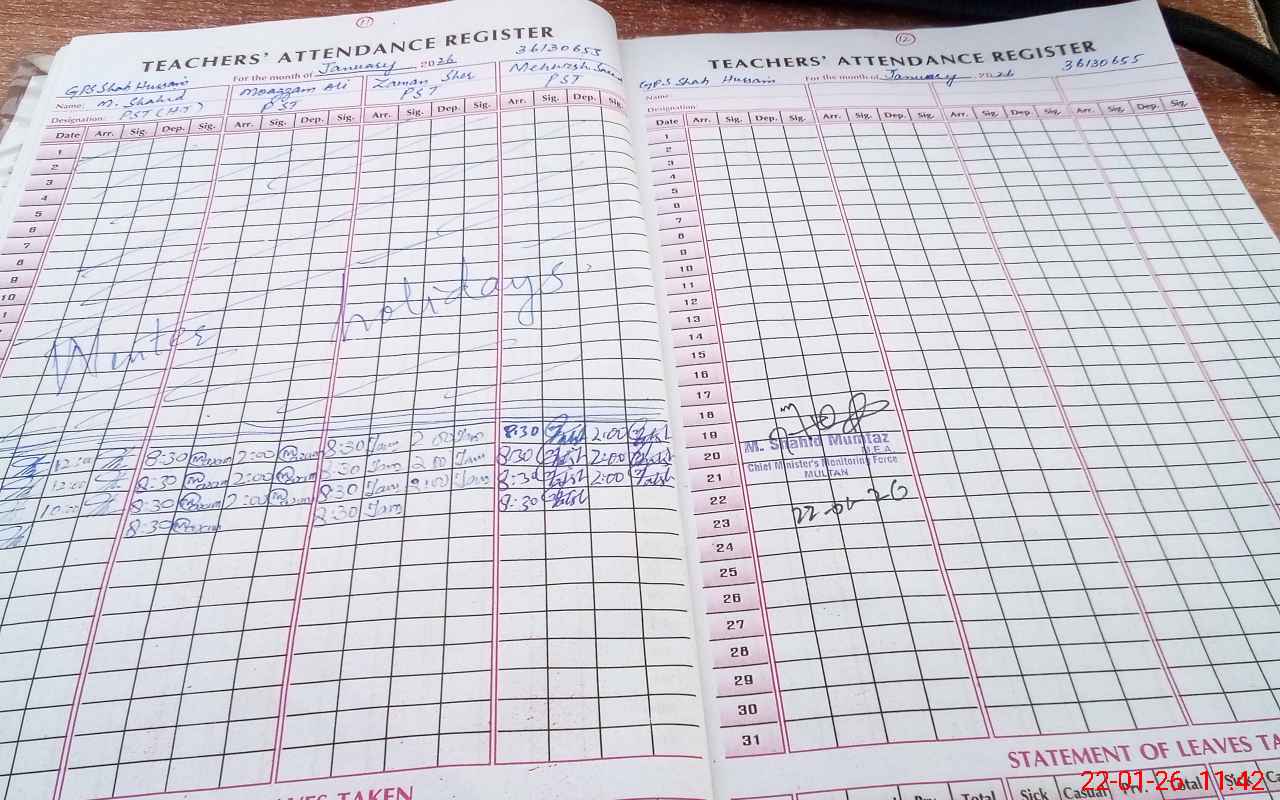 11
TEACHERS' ATTENDANCE REGISTER
GPS Shah Hussain For the month of January 2026 36130655
Name: M. Shahid Moazzam Ali Zaman Sher Mehwish
Designation: PST (HT) PST PST PST
Date Arr. Sig. Dep. Sig. Arr. Sig. Dep. Sig. Arr. Sig. Dep. Sig. Arr. Sig. Dep. Sig.
1
2
3
4
5
6
7
8
9
10
Winter holidays
8:30 2:00 8:30 2:00 8:30 2:00
12:00 8:30 2:00 8:30 2:00 8:30 2:00
8:30 2:00 8:30 2:00 8:30 2:00
8:30 8:30 8:30
LEAVES TAKEN
12
TEACHERS' ATTENDANCE REGISTER
GPS Shah Hussain For the month of January 2026 36130655
Name
Designation:
Date Arr. Sig. Dep. Sig. Arr. Sig. Dep. Sig. Arr. Sig. Dep. Sig. Arr. Sig. Dep. Sig.
1
2
3
4
5
6
7
8
9
10
11
12
13
14
15
16
17
18
19
20
21
22
23
24
25
26
27
28
29
30
31
M. Shahid Mumtaz
Chief Minister's Monitoring Force
MULTAN
22-01-26
STATEMENT OF LEAVES TA
Sick Casual Prv. Total Sick Ca
22-01-26 11:42